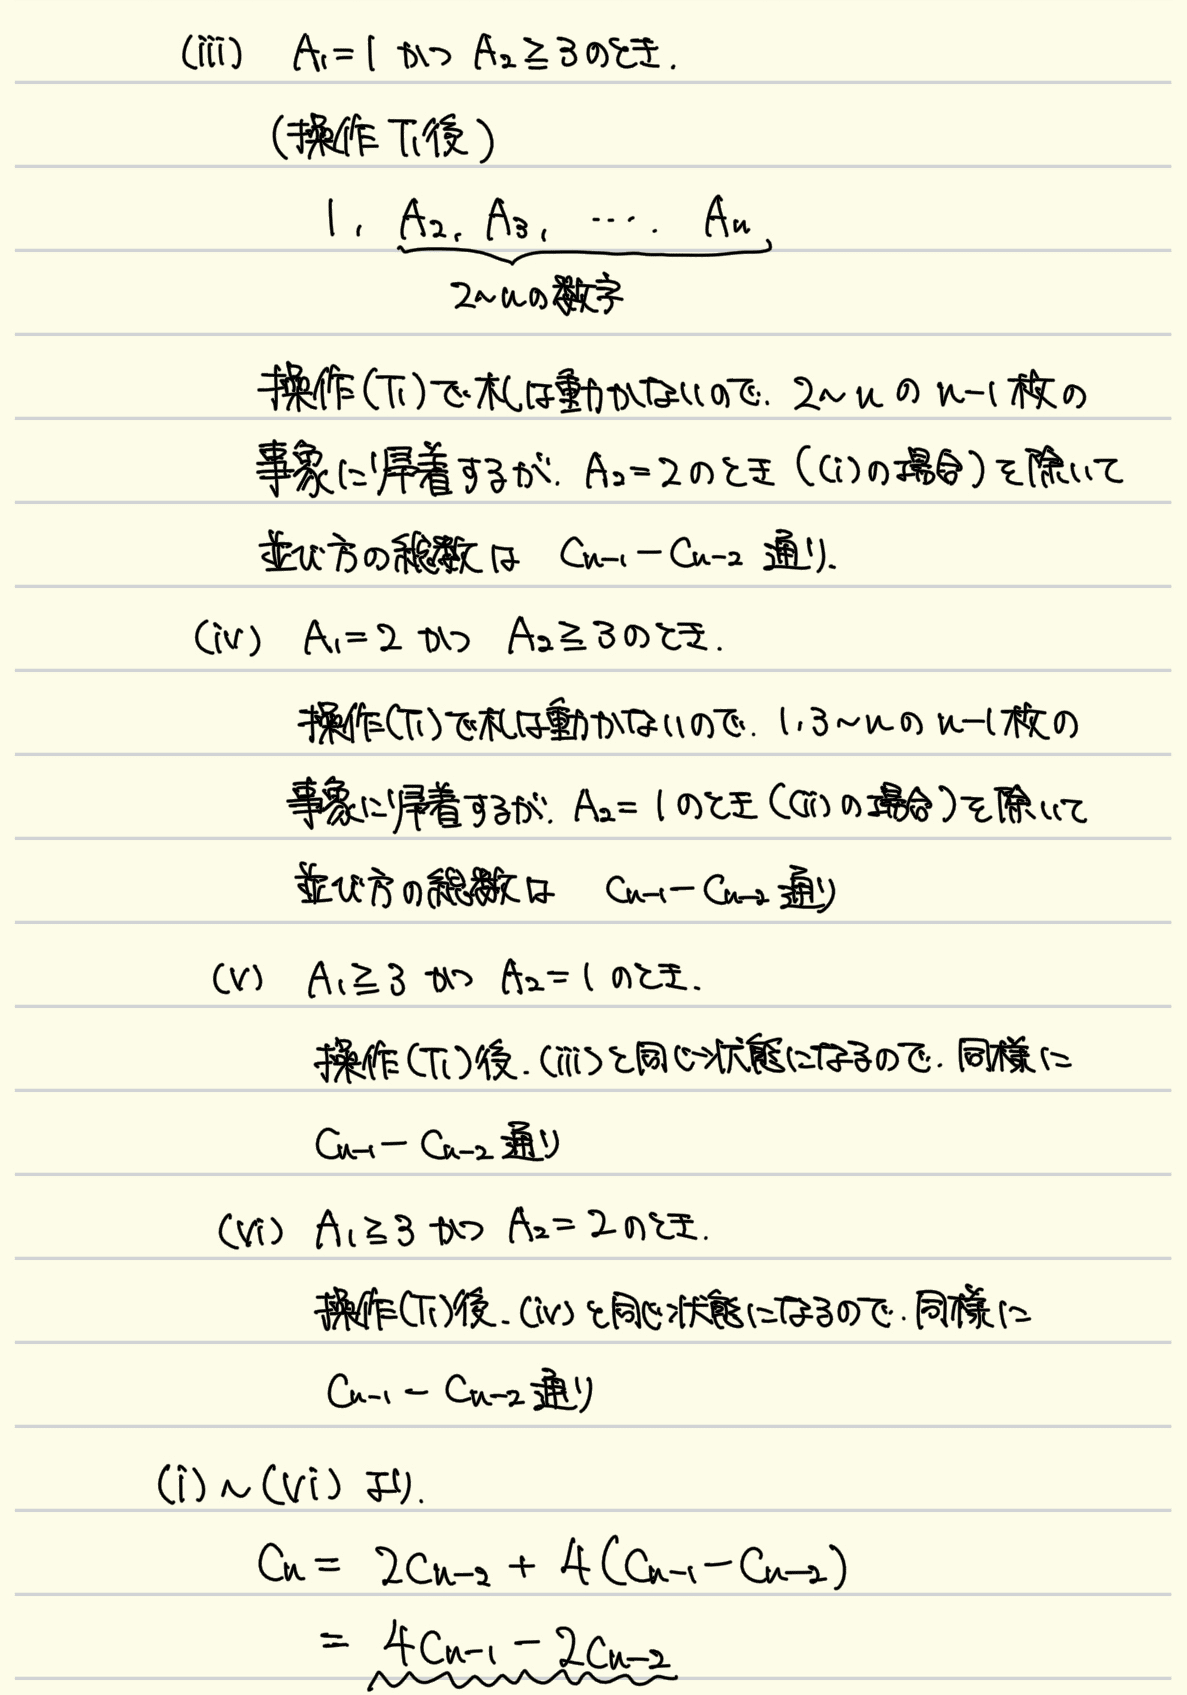 (iii) A₁=1 かつ A₂≧3のとき.
(操作 T₁後)
1, A₂, A₃, …. Aₙ
2~nの数字
操作(T₁)で札は動かないので. 2~n の n-1枚の
事象に帰着するが. A₂=2のとき ((i)の場合)を除いて
並び方の総数は Cₙ₋₁-Cₙ₋₂ 通り.
(iv) A₁=2 かつ A₂≧3のとき.
操作(T₁)で札は動かないので. 1,3~nの n-1枚の
事象に帰着するが. A₂=1のとき ((ii)の場合)を除いて
並び方の総数は Cₙ₋₁-Cₙ₋₂ 通り
(v) A₁≧3 かつ A₂=1 のとき.
操作(T₁)後. (iii)と同じ状態になるので. 同様に
Cₙ₋₁-Cₙ₋₂ 通り
(vi) A₁≧3 かつ A₂=2のとき.
操作(T₁)後. (iv)と同じ状態になるので. 同様に
Cₙ₋₁-Cₙ₋₂ 通り
(i)~(vi) より.
Cₙ= 2Cₙ₋₂+4(Cₙ₋₁-Cₙ₋₂)
= 4Cₙ₋₁-2Cₙ₋₂